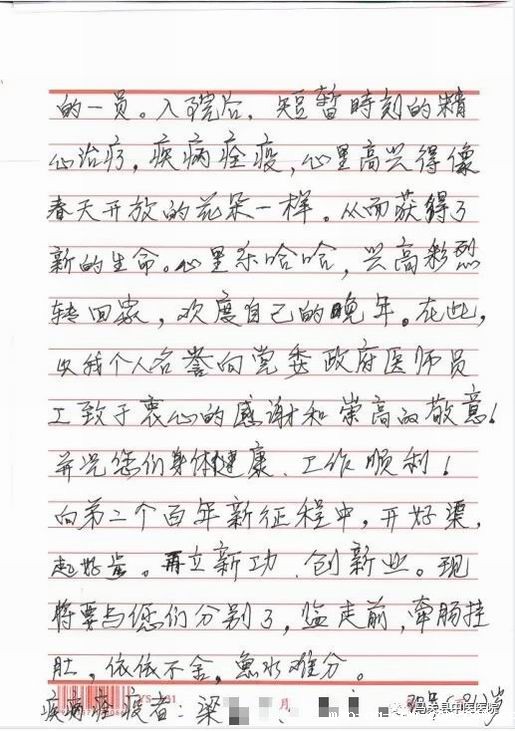 的一员。入院后，短暂時刻的精
心治疗，疾病痊疫，心里高兴得像
春天开放的花朵一样。从而获得了
新的生命。心里乐哈哈，兴高彩烈
转回家，欢度自己的晚年。在此，
以我个人名誉向党委政府医师员
工致于衷心的感谢和崇高的敬意！
并祝您们身体健康、工作顺利！
向第二个百年新征程中，开好渠，
起好头。再立新功、创新业。现
将要与您们分别了，临走前，牵肠挂
肚，依依不舍，鱼水难分。
疾病痊疫者：梁 月 (81)岁
县中医医院